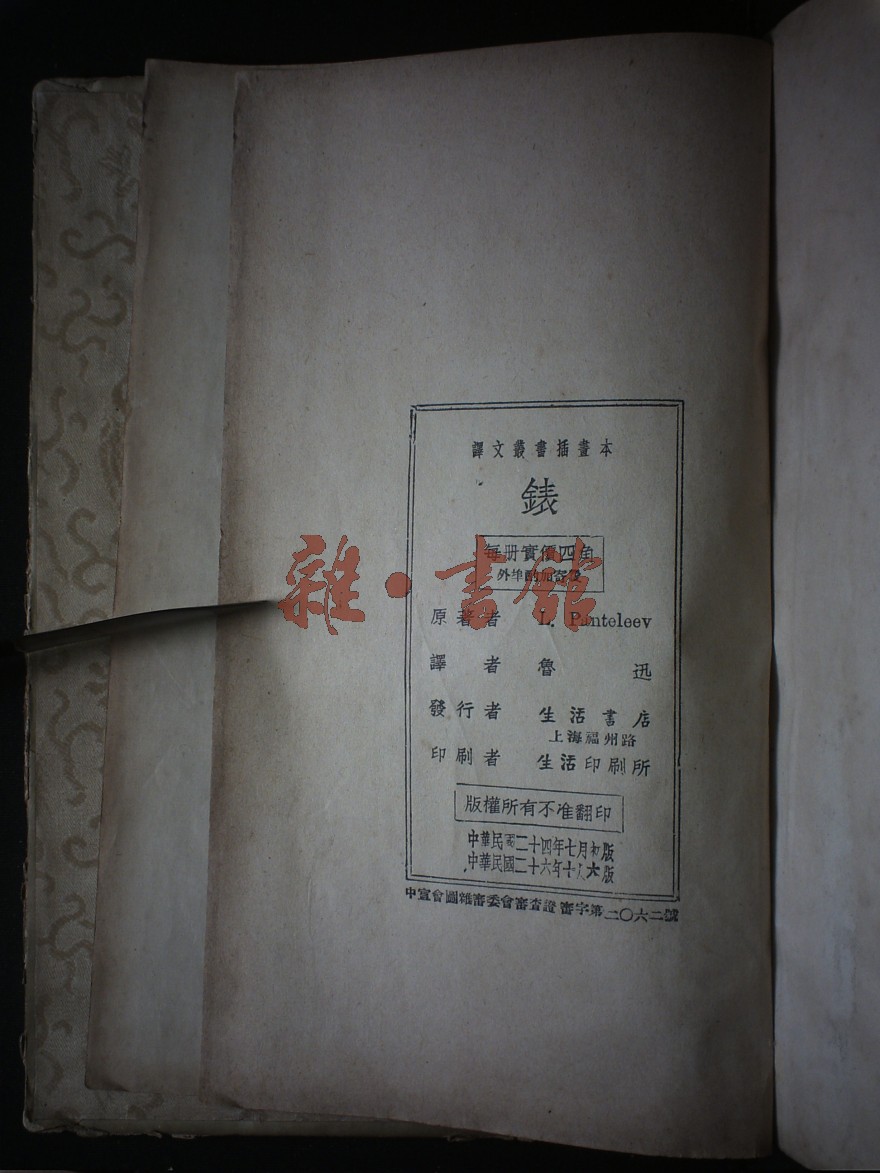 譯文叢書插畫本
錶
每册實價四角
外埠酌加寄費
原著者 L. Panteleev
譯者 魯迅
發行者 生活書店
上海福州路
印刷者 生活印刷所
版權所有不准翻印
中華民國二十四年七月初版
中華民國二十六年十月六版
中宣會圖雜審委會審查證審字第二〇六二號
雜·書館